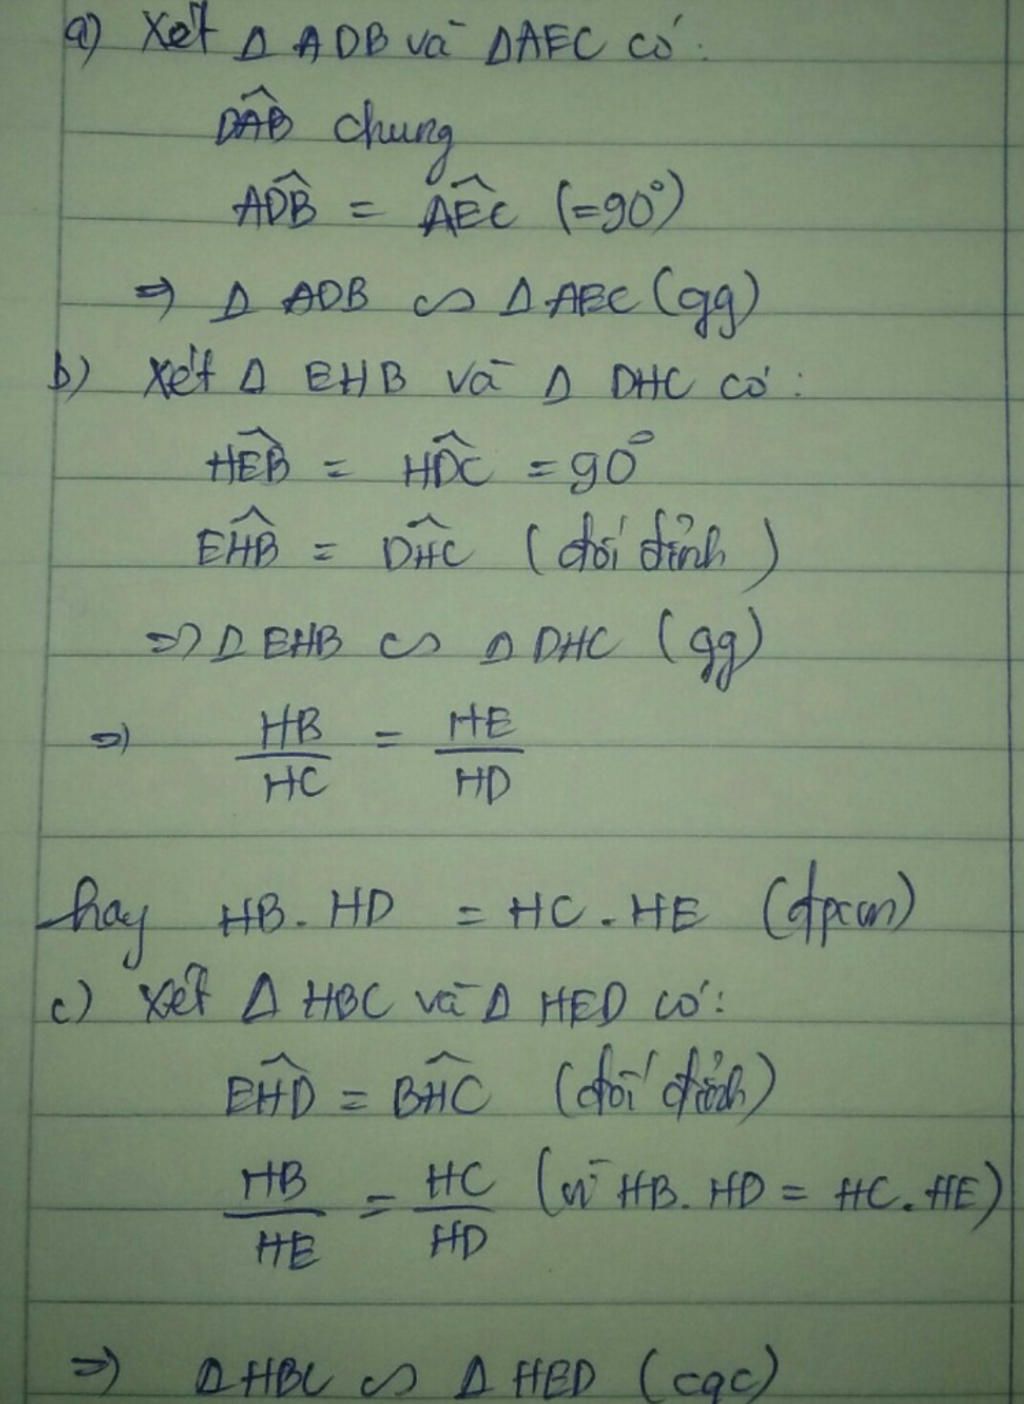 a) Xét Δ ADB và ΔAEC có:
DAB̂ chung
ADB̂ = AEĈ (=90°)
=> Δ ADB ∽ Δ AEC (gg)
b) Xét Δ EHB và Δ DHC có:
HEB̂ = HDĈ = 90°
EHB̂ = DHĈ (đối đỉnh)
=> Δ EHB ∽ Δ DHC (gg)
=> HB/HC = HE/HD
hay HB. HD = HC. HE (đpcm)
c) Xét Δ HBC và Δ HED có:
EHD̂ = BHĈ (đối đỉnh)
HB/HE = HC/HD (vì HB. HD = HC. HE)
=> Δ HBC ∽ Δ HED (cgc)